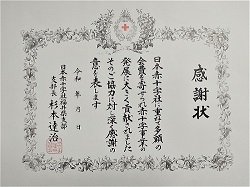 感謝状
日本赤十字社に重ねて多額の
会費を寄せられ赤十字事業の
発展に大きく貢献されました
そのご協力に対し深く感謝の
意を表します
令和 年 月 日
日本赤十字社福井県支部
支部長 杉本達治